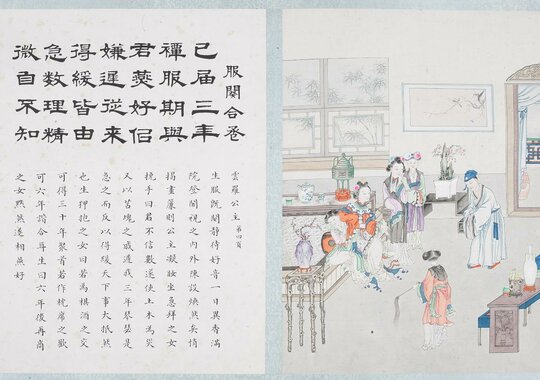 服闋合卺
已届三年
禫服期與
君羙好侣
嫌遲從來
得緩皆由
急数理精
微自不知
雲羅公主 第四頁
生服既闋靜待好音一日異香滿
院登閣視之內外陳設煥然矣悄
揭畫簾則公主凝妝坐急拜之女
挽手曰君不信數遂使土木為災
又以苫塊之戚遲我三年琴瑟是
急之而反以得緩天下事大抵然
也生狎抱之女曰若為棋酒之交
可得三十年聚首若作枕席之歡
可六年諧合耳生曰六年後再商
之女默然遂相燕好